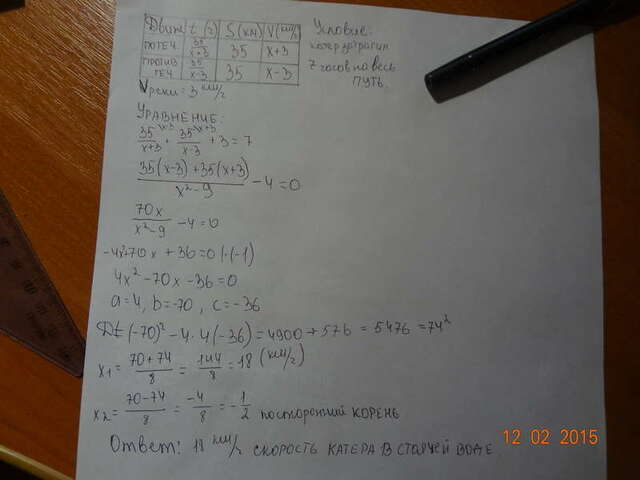 Движ t (ч) S (км) V (км/ч)
по теч. 35/x+3 35 x+3
против теч. 35/x-3 35 x-3
Vреки = 3 км/ч
Условие:
катер затратил
7 часов на весь
путь.
Уравнение:
35\x-3/x+3 + 35\x+3/x-3 + 3 = 7
35(x-3)+35(x+3)/x²-9 - 4 = 0
70x/x²-9 - 4 = 0
-4x²+70x + 36 = 0 |·(-1)
4x² - 70x - 36 = 0
a = 4, b = -70, c = -36
D = (-70)² - 4·4(-36) = 4900 + 576 = 5476 = 74²
x₁ = 70+74/8 = 144/8 = 18 (км/ч)
x₂ = 70-74/8 = -4/8 = -1/2 посторонний корень
Ответ: 18 км/ч скорость катера в стоячей воде
12 02 2015